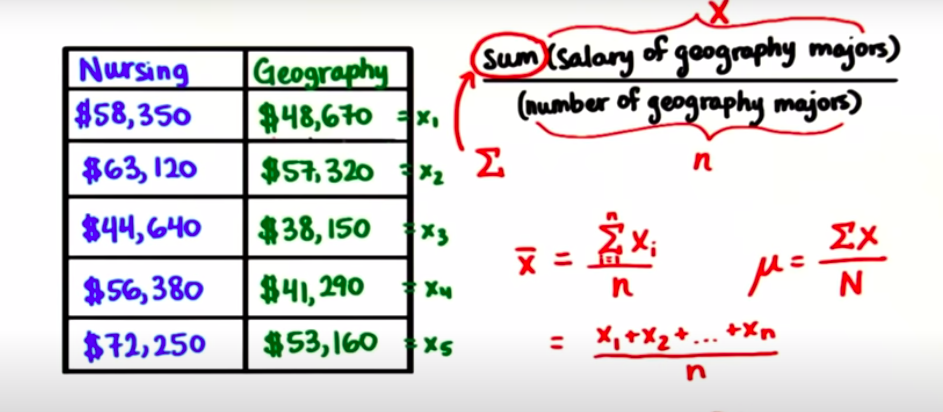 Nursing Geography
$58,350 $48,670 = x₁
$63,120 $57,320 = x₂
$44,640 $38,150 = x₃
$56,380 $41,290 = x₄
$72,250 $53,160 = x₅
X
Sum (Salary of geography majors)
(number of geography majors)
Σ
n
x̄ = n Σ i=1 xᵢ / n
μ = ΣX / N
= x₁+x₂+...+xₙ / n